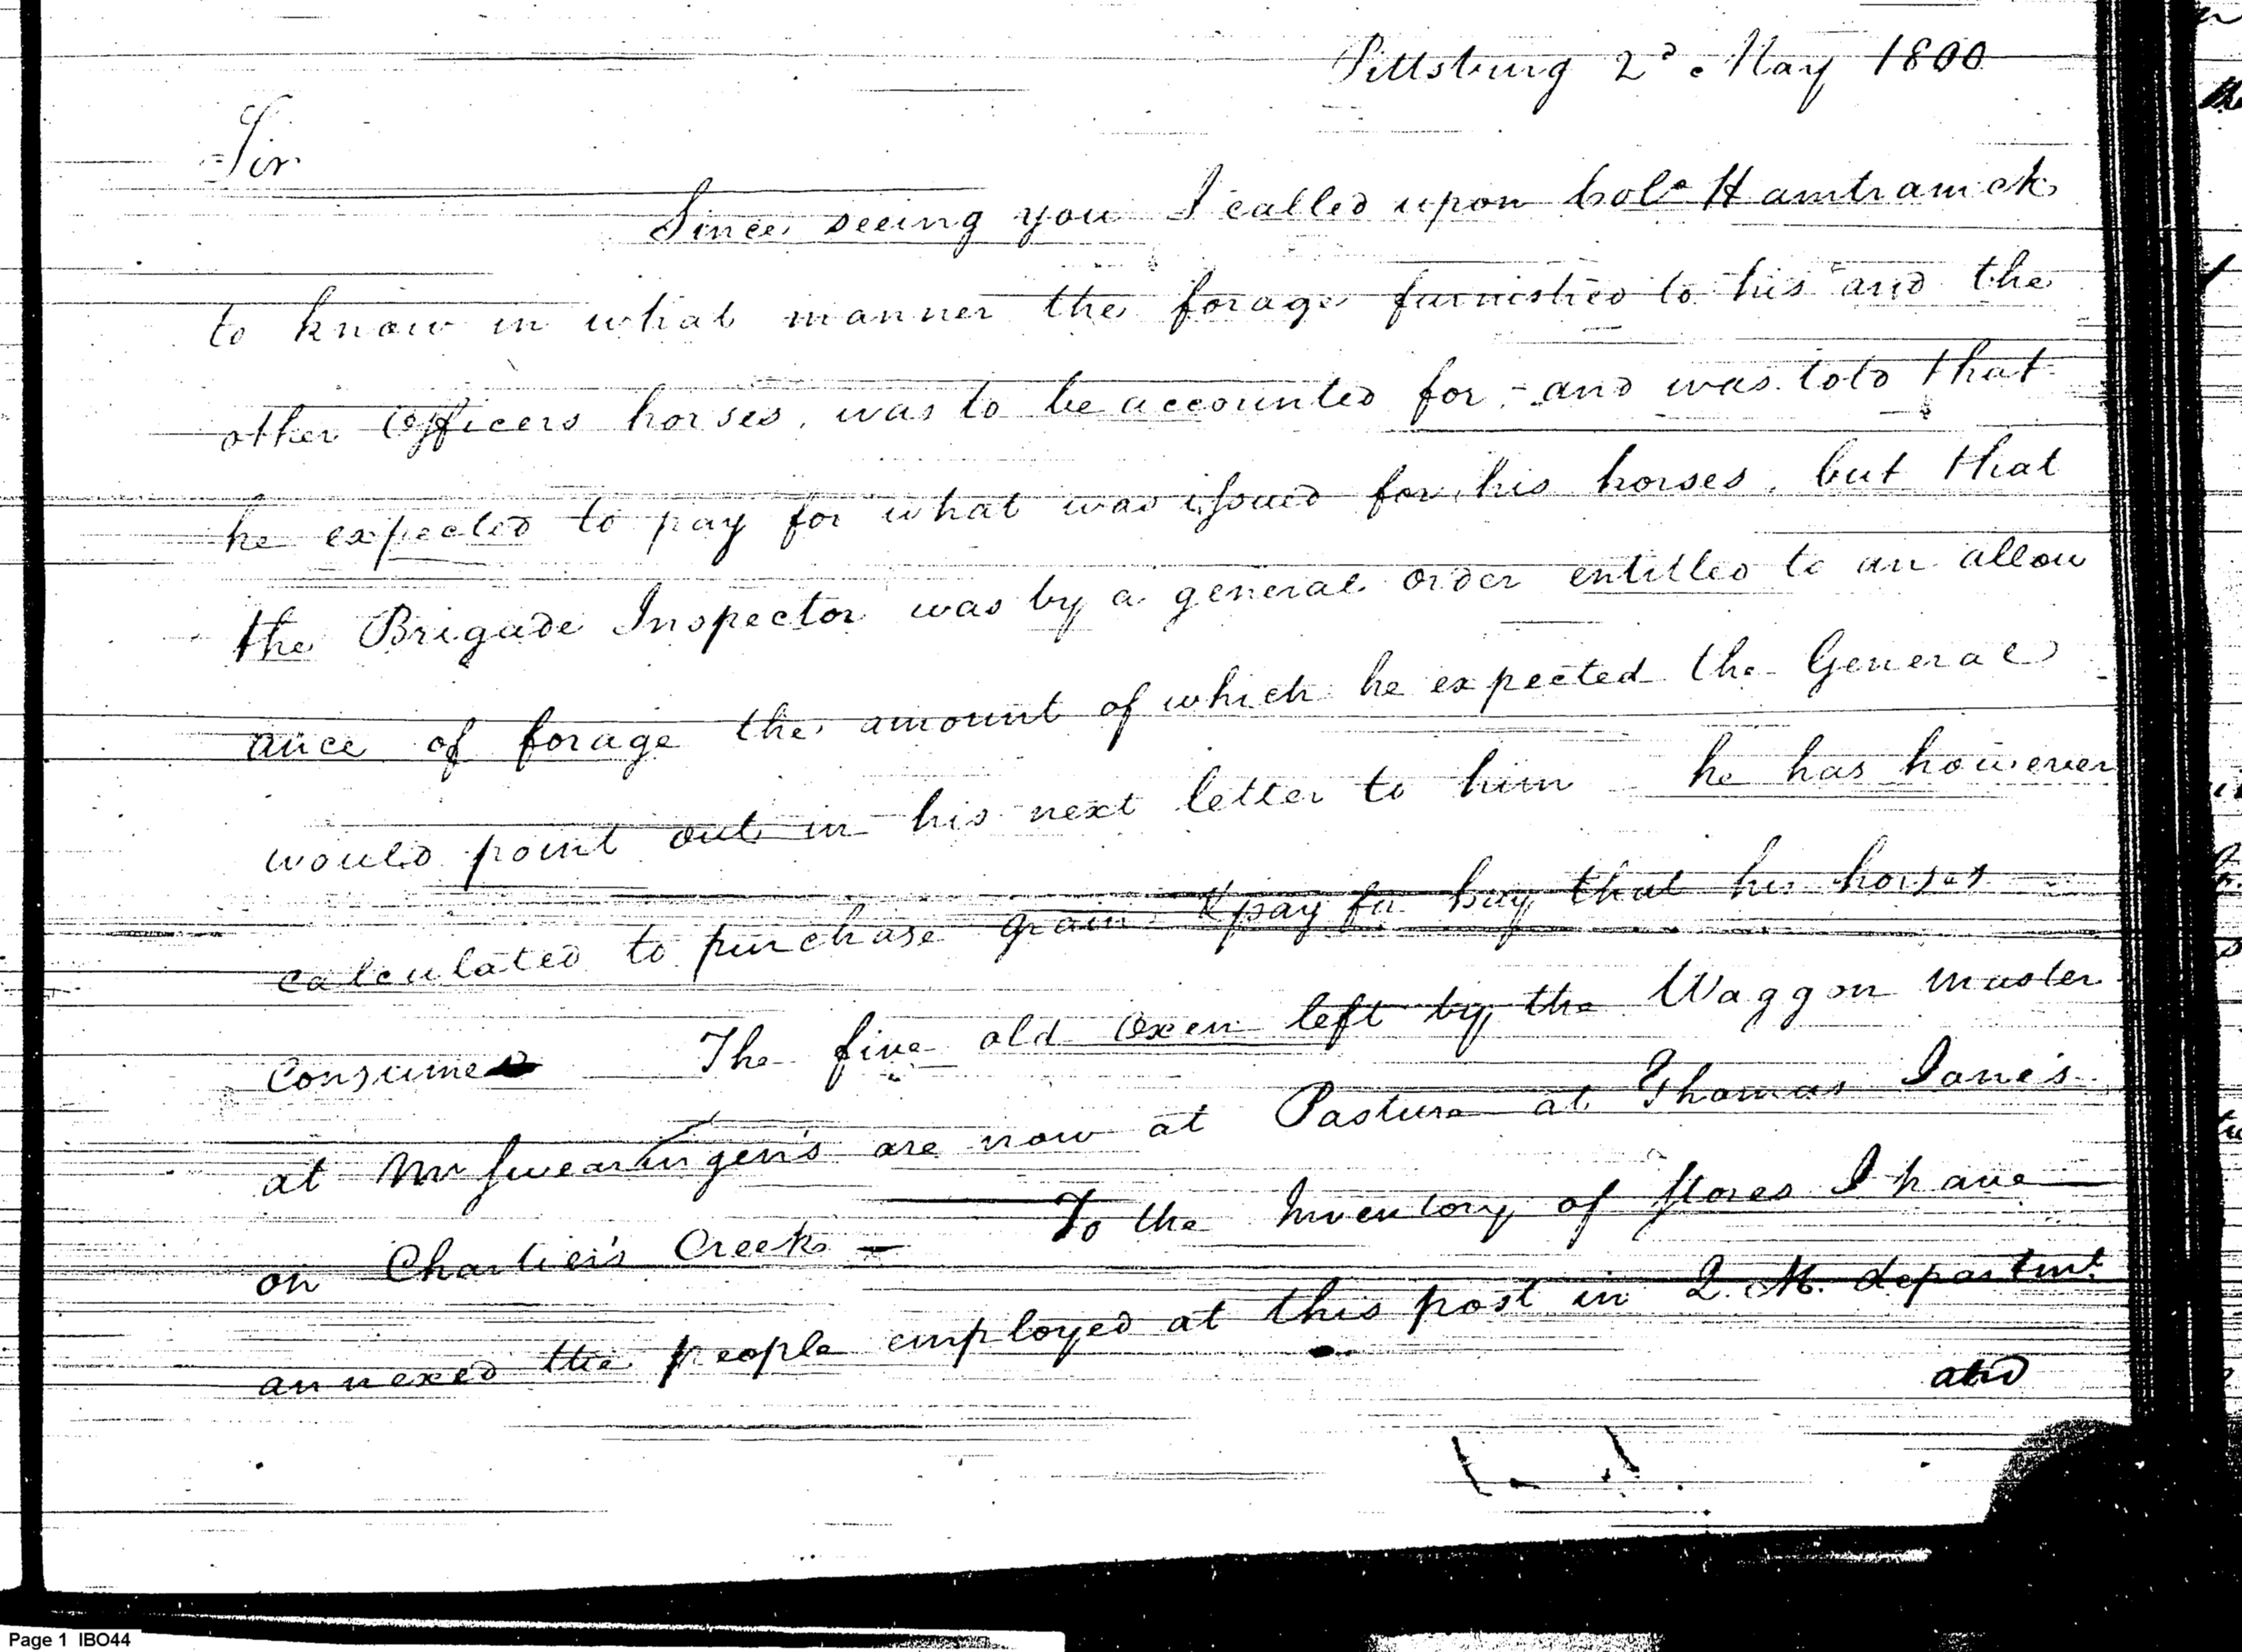 Pittsburg 2d. May 1800
Sir
Since seeing you I called upon Colo Hamtramck
to know in what manner the forage furnished to his and the
other Officers horses, was to be accounted for, - and was told that
he expected to pay for what was issued for his horses, but that
the Brigade Inspector was by a general order entitled to an allow
ance of forage the amount of which he expected the General
would point out in his next letter to him he has however
calculated to purchase grain & pay for hay that his horses
Consumed The five old Oxen left by the Waggon master
at Mr Swearingen's are now at Pasture at Thomas Jane's
on Chartier's Creek — To the Inventory of Stores I have
annexed the people employed at this post in Q. M. departmt
and
Page 1 IBO44